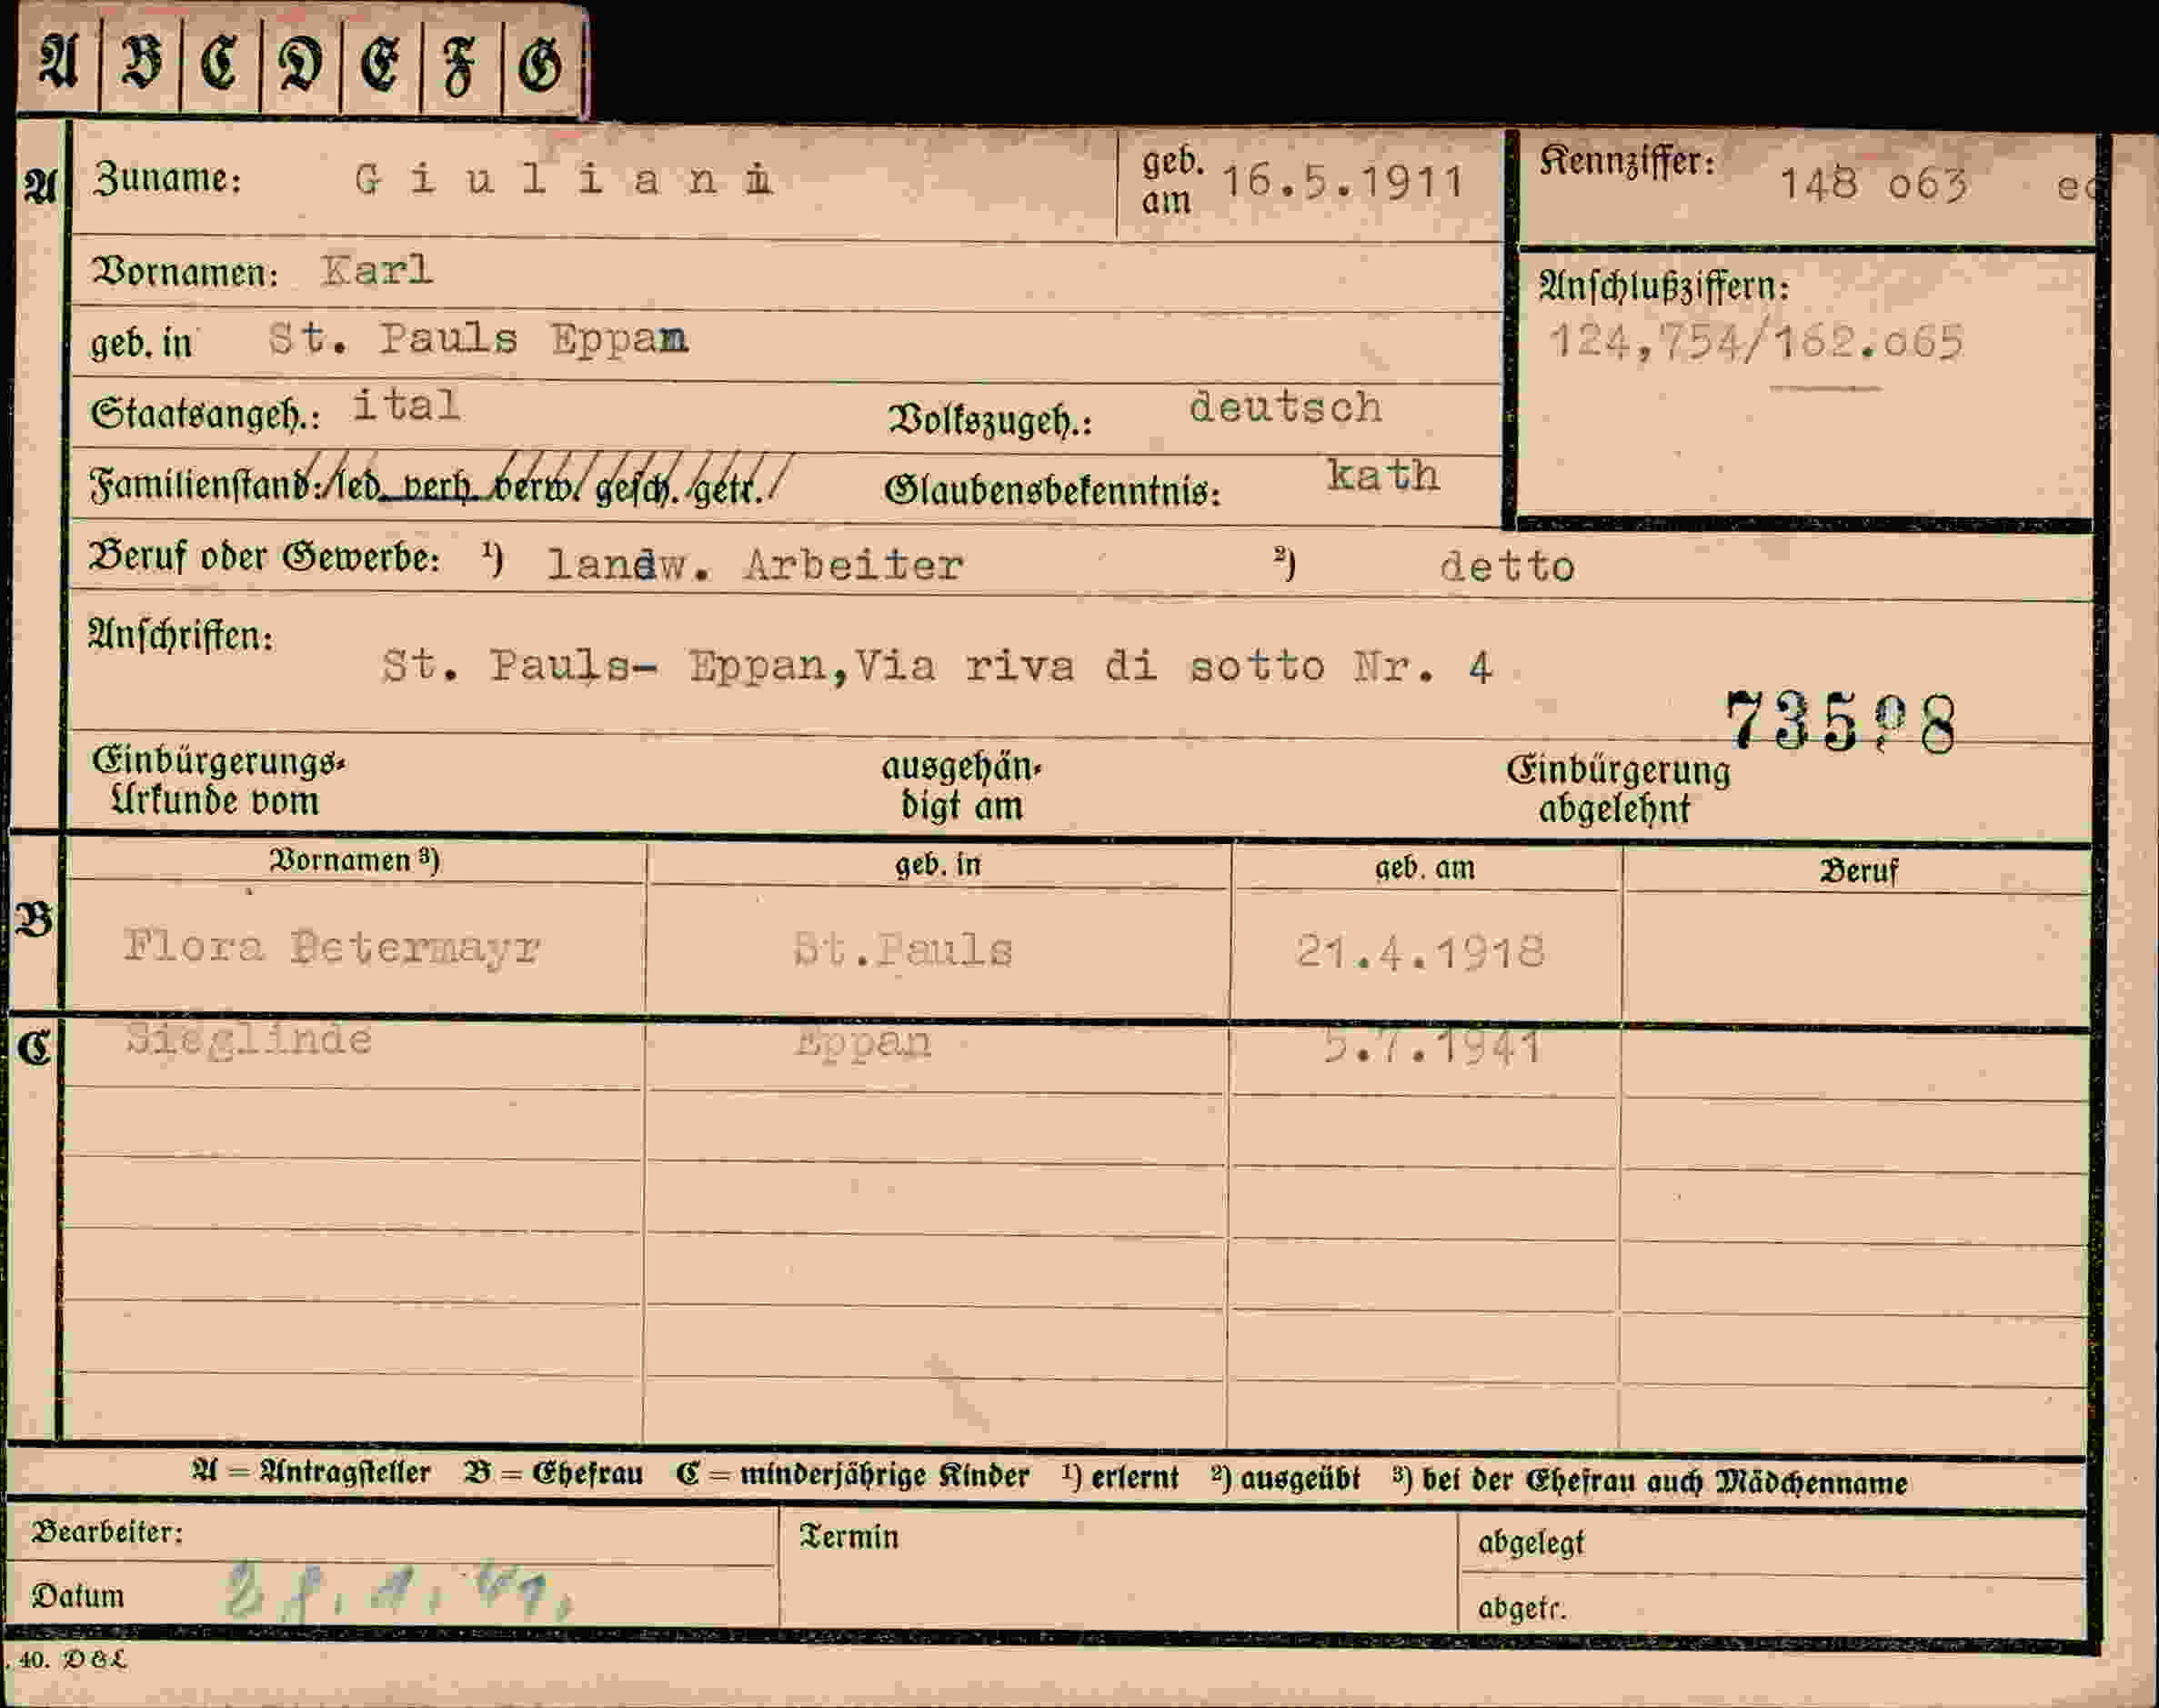 A B C D E F G
A Zuname: Giuliani geb. am 16.5.1911 Kennziffer: 148 o63
Vornamen: Karl
Anschlußziffern:
geb. in St. Pauls Eppan 124,754/162.o65
Staatsangeh.: ital Volkszugeh.: deutsch
Familienstand: led. verh. verw. gesch. getr. Glaubensbekenntnis: kath
Beruf oder Gewerbe: ¹) landw. Arbeiter ²) detto
Anschriften:
St. Pauls- Eppan, Via riva di sotto Nr. 4
Einbürgerungs-
Urkunde vom
ausgehän-
digt am
Einbürgerung
abgelehnt
Vornamen ³) geb. in geb. am Beruf
B Flora Petermayr St.Pauls 21.4.1918
C Sieglinde Eppan 5.7.1941
A = Antragsteller B = Ehefrau C = minderjährige Kinder ¹) erlernt ²) ausgeübt ³) bei der Ehefrau auch Mädchenname
Bearbeiter: Termin abgelegt
Datum abgetr.
40. D & L